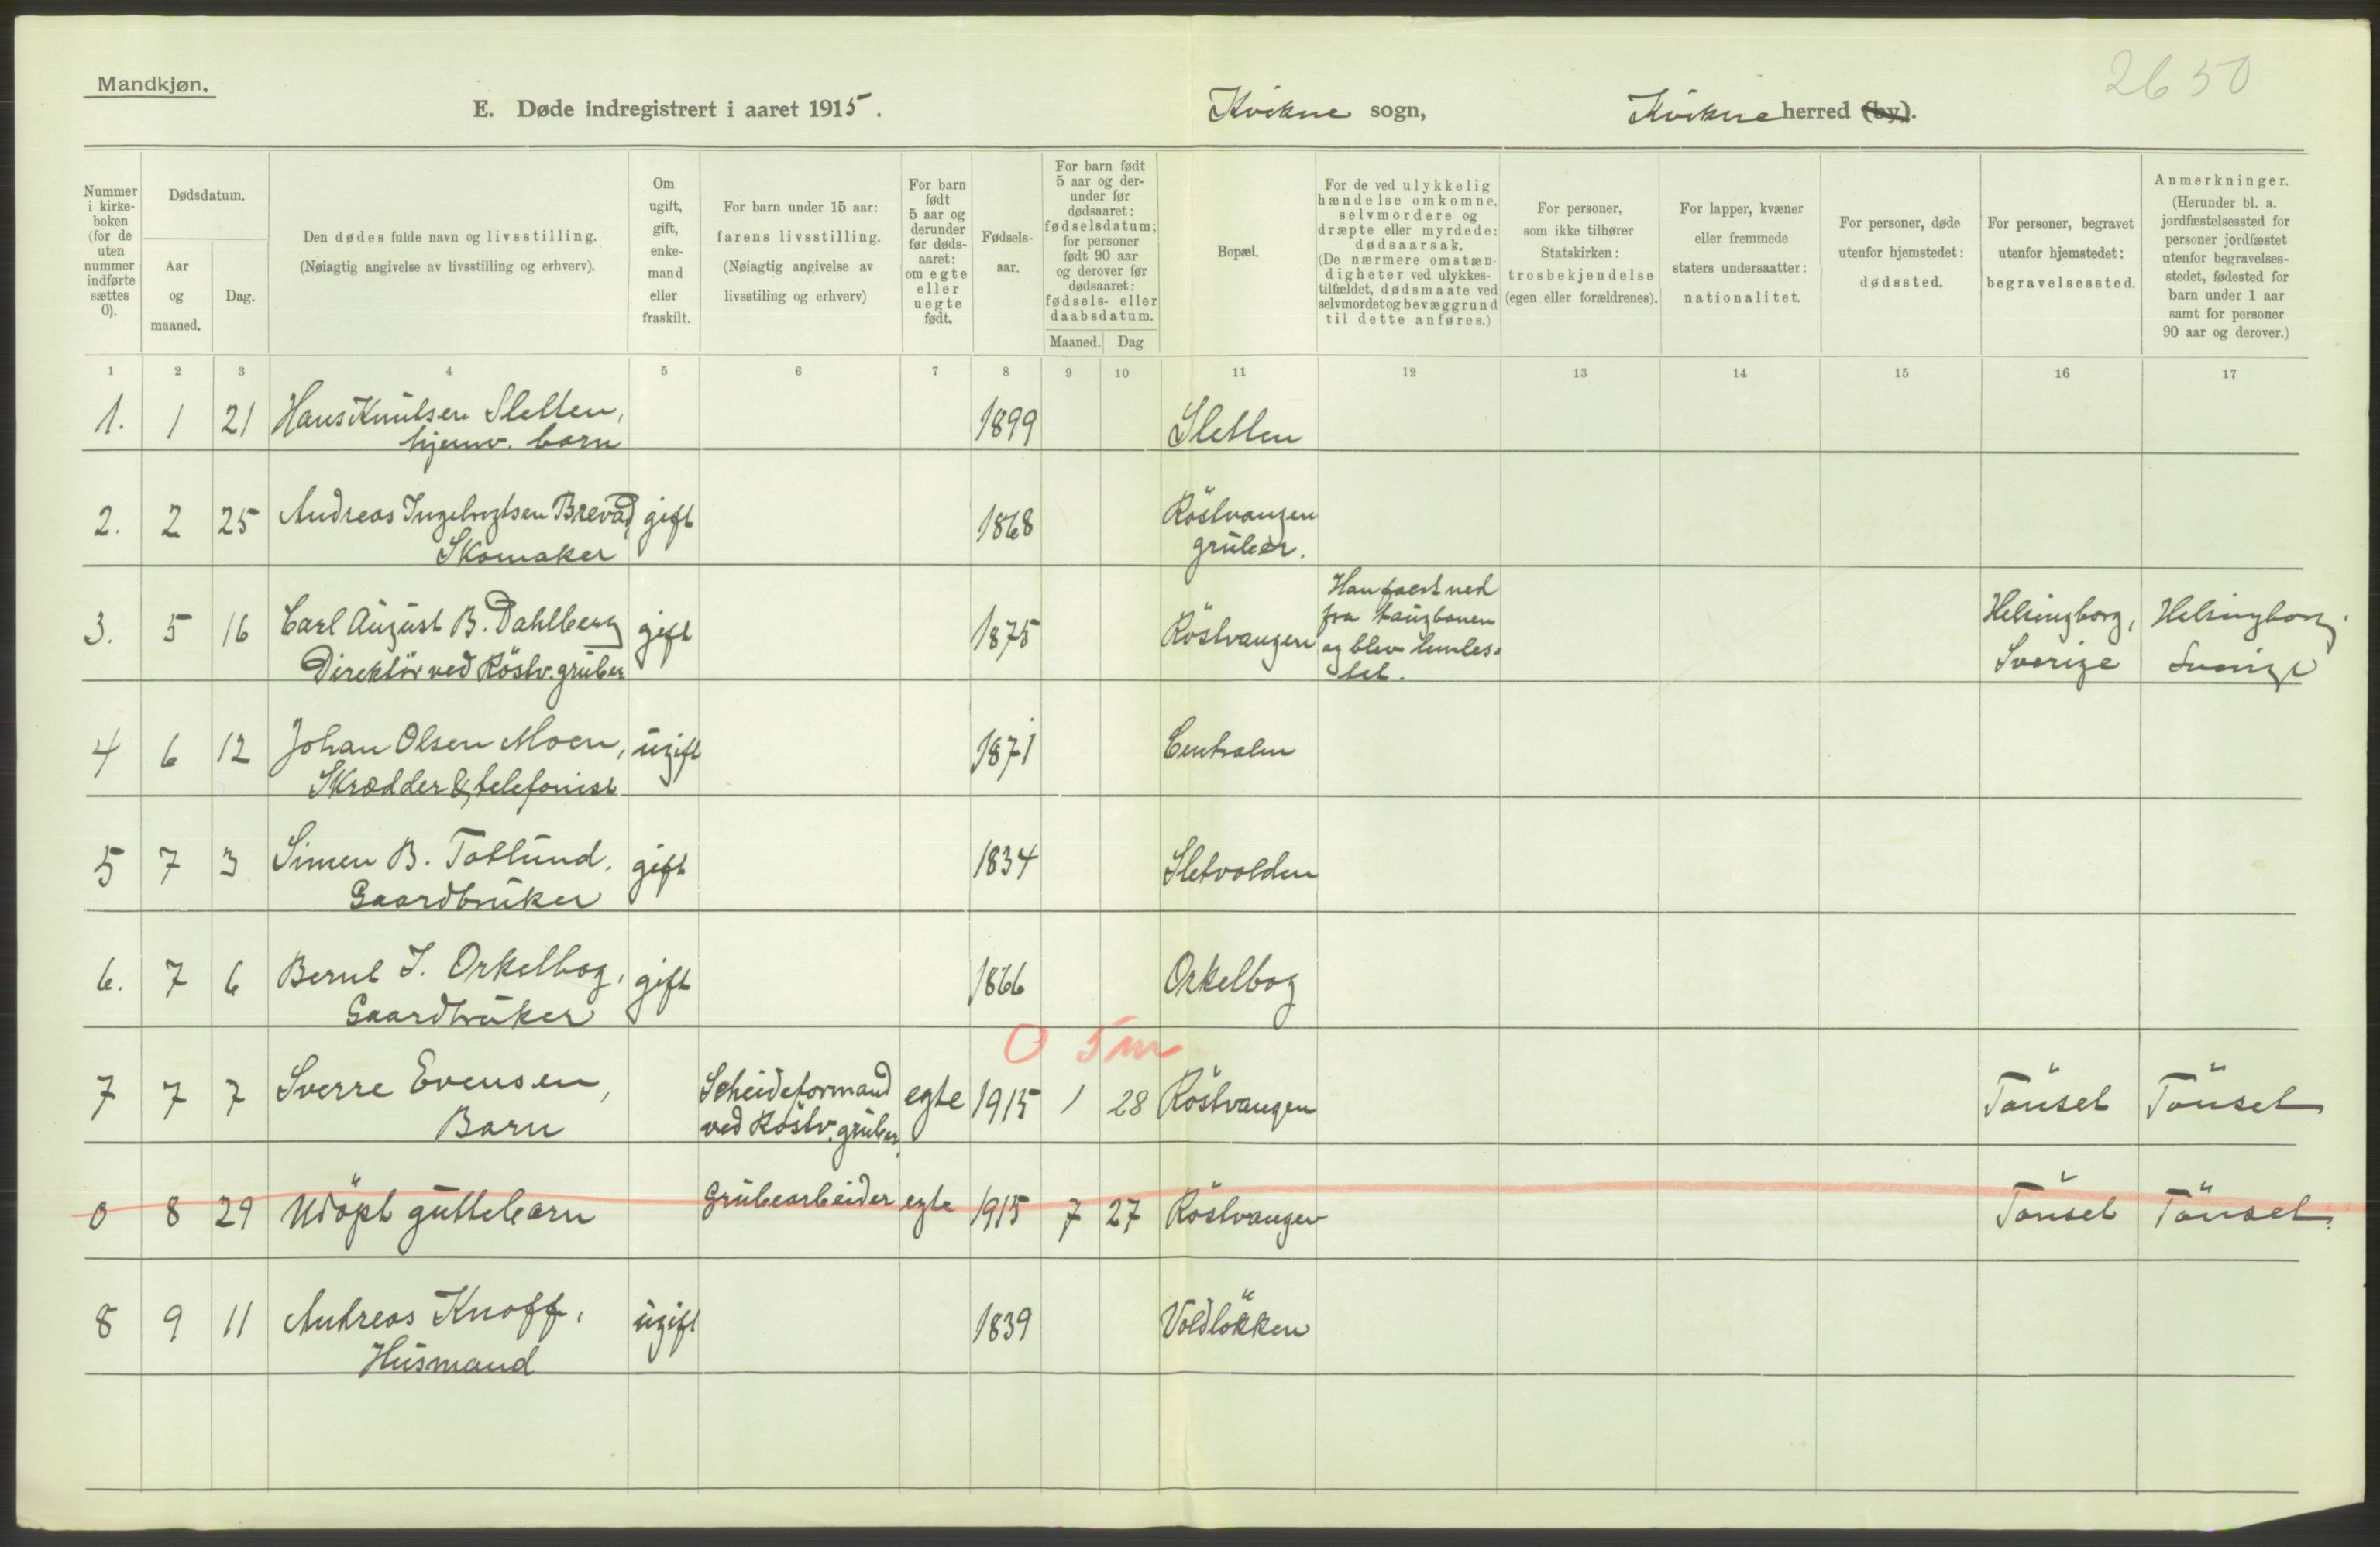 2650
Mandkjøn.
E. Døde indregistrert i aaret 1915.
Kvikne sogn,
Kvikne herred (by).
Nummer i kirke-boken (for de uten nummer indførte sættes 0).
Dødsdatum.
Aar og maaned.
Dag.
Den dødes fulde navn og livsstilling.
(Nøiagtig angivelse av livsstilling og erhverv).
Om ugift, gift, enke-mand eller fraskilt.
For barn under 15 aar: farens livsstilling.
(Nøiagtig angivelse av livsstiling og erhverv)
For barn født 5 aar og derunder før døds-aaret: om egte eller uegte født.
Fødsels-aar.
For barn født 5 aar og der-under før dødsaaret: fødselsdatum; for personer født 90 aar og derover før dødsaaret: fødsels- eller daabsdatum.
Maaned. Dag
Bopæl.
For de ved ulykkelig hændelse omkomne, selvmordere og dræpte eller myrdede: dødsaarsak.
(De nærmere omstæn-digheter ved ulykkes-tilfældet, dødsmaate ved selvmordet og bevæggrund til dette anføres.)
For personer, som ikke tilhører Statskirken: trosbekjendelse (egen eller forældrenes).
For lapper, kvæner eller fremmede staters undersaatter: nationalitet.
For personer, døde utenfor hjemstedet: dødssted.
For personer, begravet utenfor hjemstedet: begravelsessted.
Anmerkninger.
(Herunder bl. a. jordfæstelsessted for personer jordfæstet utenfor begravelses-stedet, fødested for barn under 1 aar samt for personer 90 aar og derover.)
1 2 3 4 5 6 7 8 9 10 11 12 13 14 15 16 17
1. 1 21 Hans Knutsen Sletten, 1899 Sletten
hjemv. barn
2. 2 25 Andreas Ingebrigtsen Brevad, gift 1868 Röstvangen
Skomaker gruber.
3. 5 16 Carl August B. Dahlberg gift 1875 Röstvangen Han faldt ned Helsingborg, Helsingborg,
Direktör ved Röstv. gruber fra taugbanen Sverige Sverige
og blev lemles-
tet.
4 6 12 Johan Olsen Moen, ugift 1871 Centralen
Skrædder & telefonist
5 7 3 Simen B. Toblund. gift 1834 Sletvolden
Gaardbruker
6. 7 6 Bernt I. Orkelbog, gift 1866 Orkelbog
Gaardbruker
0 5 m
7 7 7 Sverre Evensen, Scheideformand egte 1915 1 28 Röstvangen Tönset Tönset
Barn ved Röstv. gruber,
0 8 29 Udöpt guttebarn Grubearbeider egte 1915 7 27 Röstvangen Tönset Tönset.
8 9 11 Andreas Knoff, ugift 1839 Voldlökken
Husmand